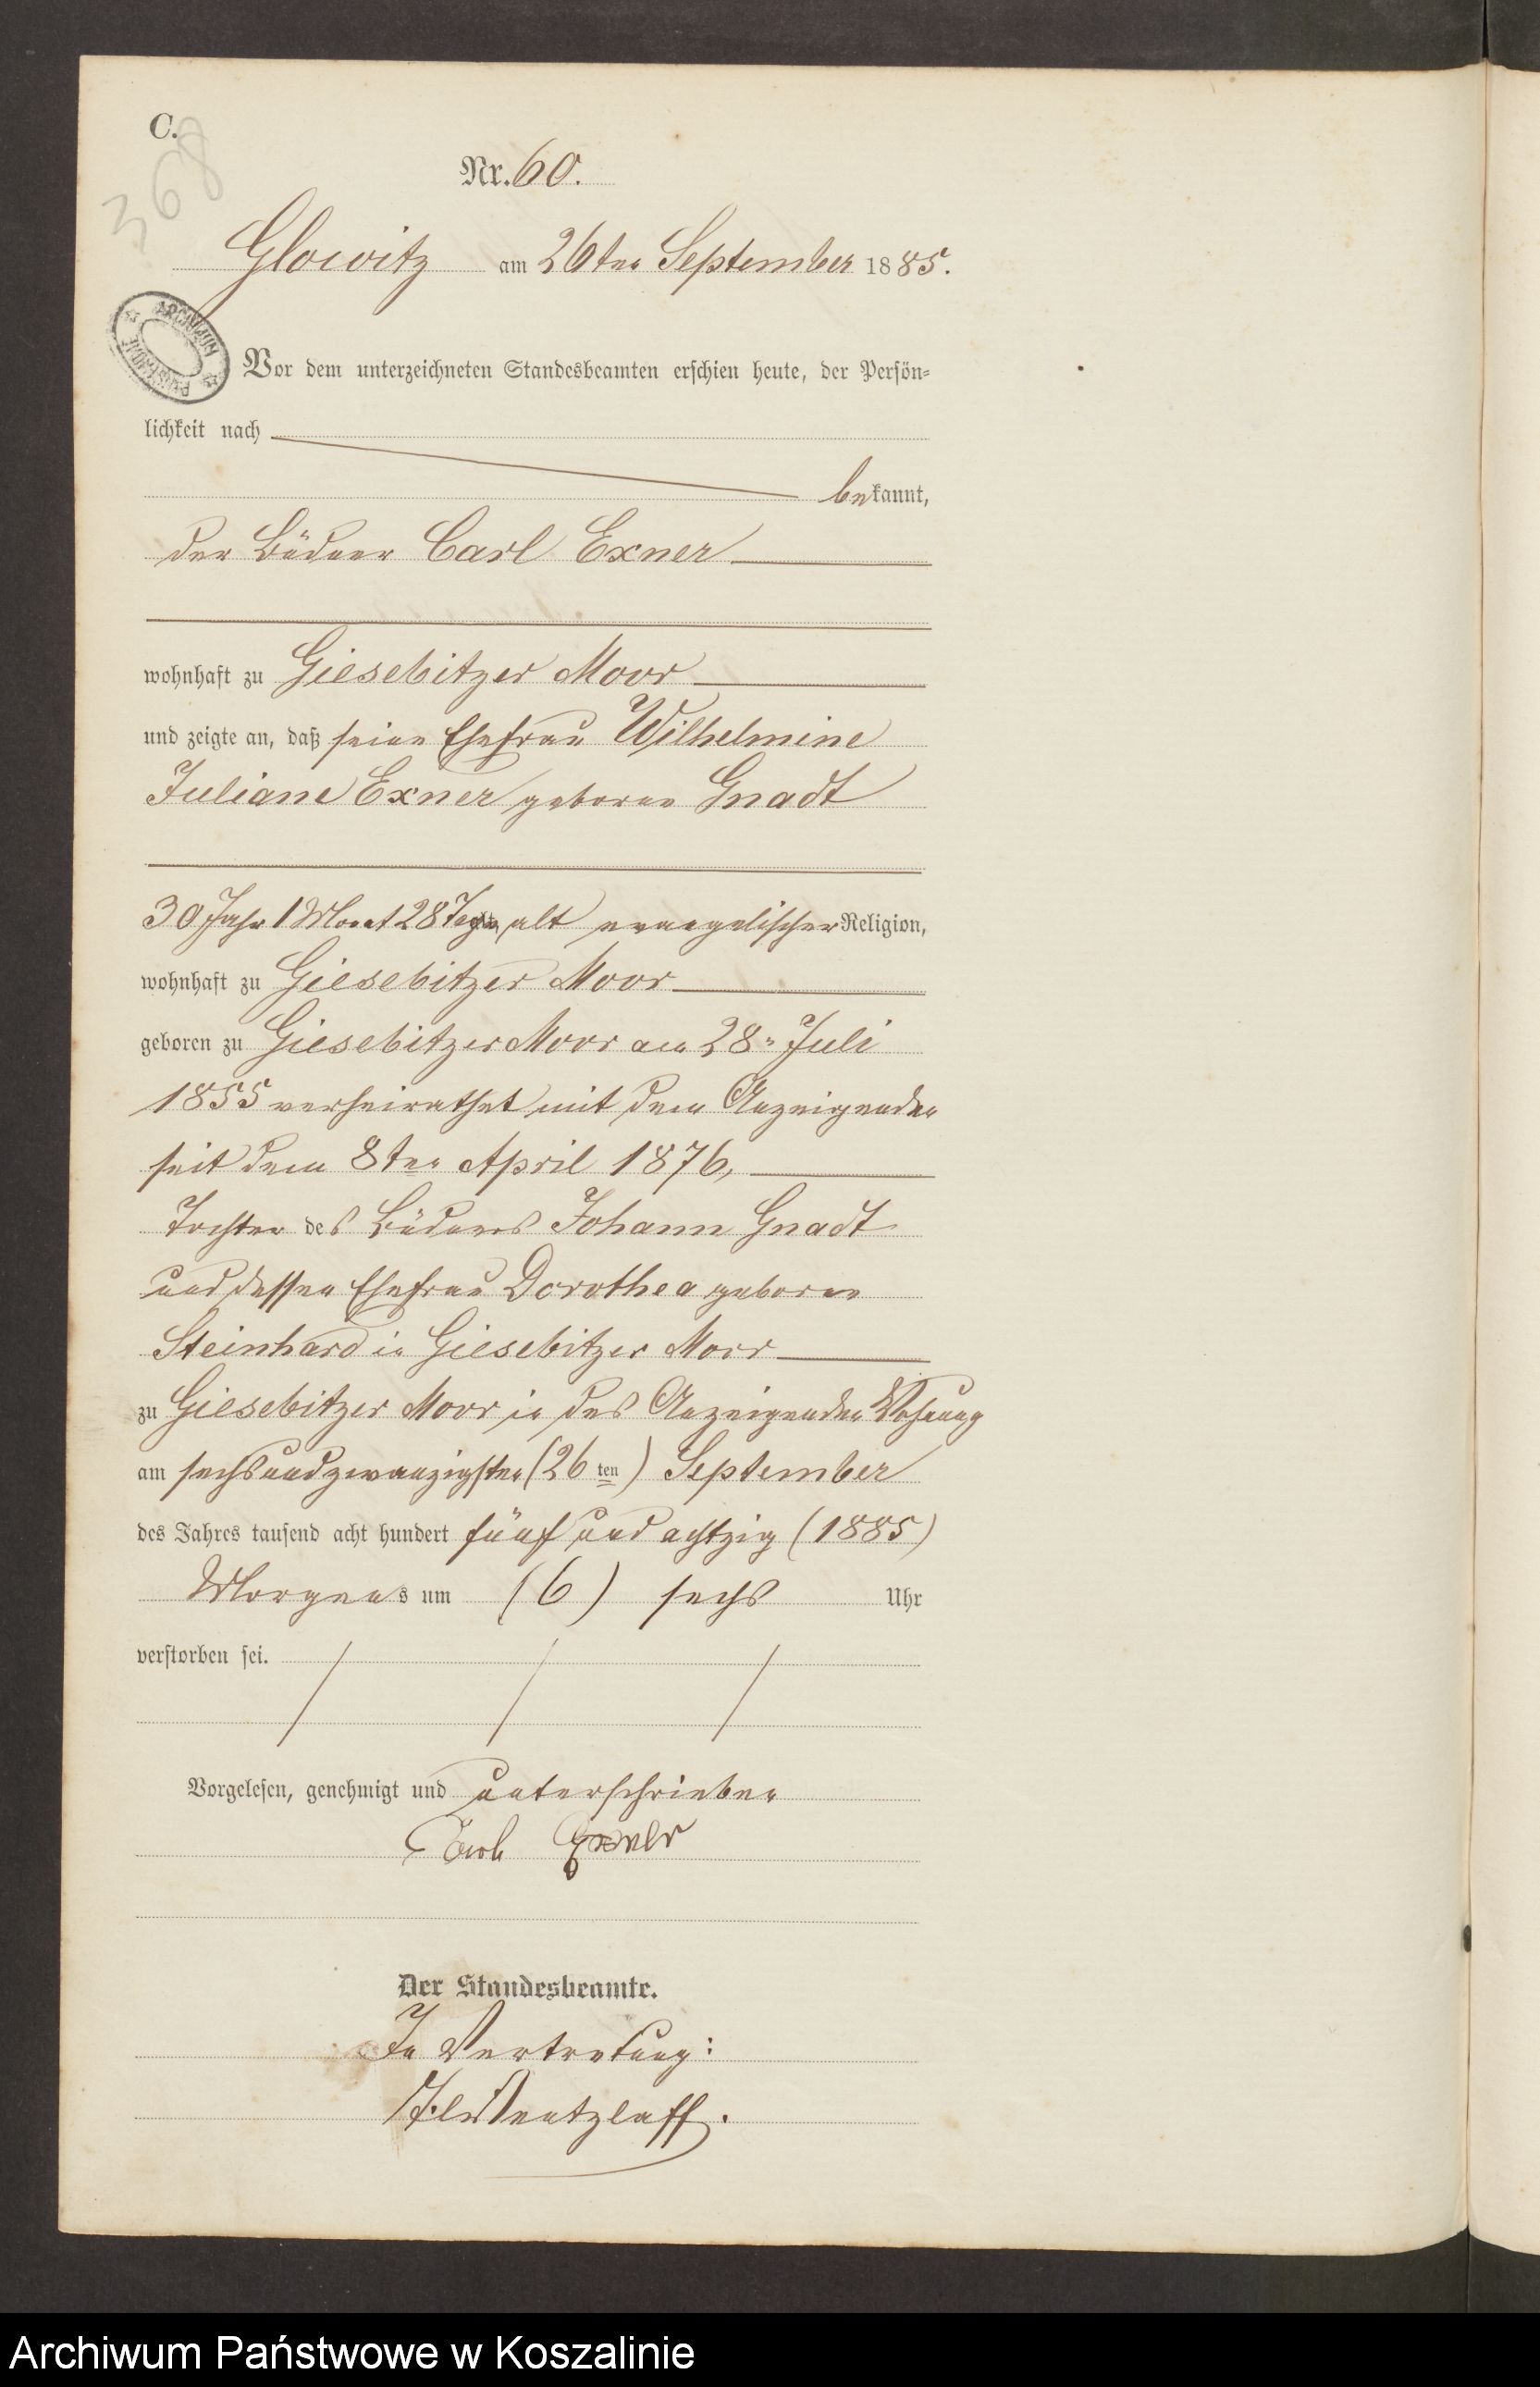 C.
368
Nr. 60.
Glowitz am 26ten September 1885.
ARCHIWUM PAŃSTWOWE
Vor dem unterzeichneten Standesbeamten erschien heute, der Persön-
lichkeit nach
bekannt,
der Büdner Carl Exner
wohnhaft zu Giesebitzer Moor
und zeigte an, daß seine Ehefrau Wilhelmine
Juliane Exner geborne Gnadt
30 Jahr 1 Monat 28 Tage alt evangelischer Religion,
wohnhaft zu Giesebitzer Moor
geboren zu Giesebitzer Moor am 28n Juli
1855 verheirathet mit dem Anzeigenden
seit dem 8ten April 1876,
Tochter des Büdners Johann Gnadt
und dessen Ehefrau Dorothea geborne
Steinhard in Giesebitzer Moor
zu Giesebitzer Moor in des Anzeigenden Wohnung
am sechsundzwanzigsten (26ten) September
des Jahres tausend acht hundert fünf und achtzig (1885)
Morgens um (6) sechs Uhr
verstorben sei.
Vorgelesen, genehmigt und unterschrieben
Carl Exner
Der Standesbeamte.
In Vertretung:
Wentzlaff.
Archiwum Państwowe w Koszalinie